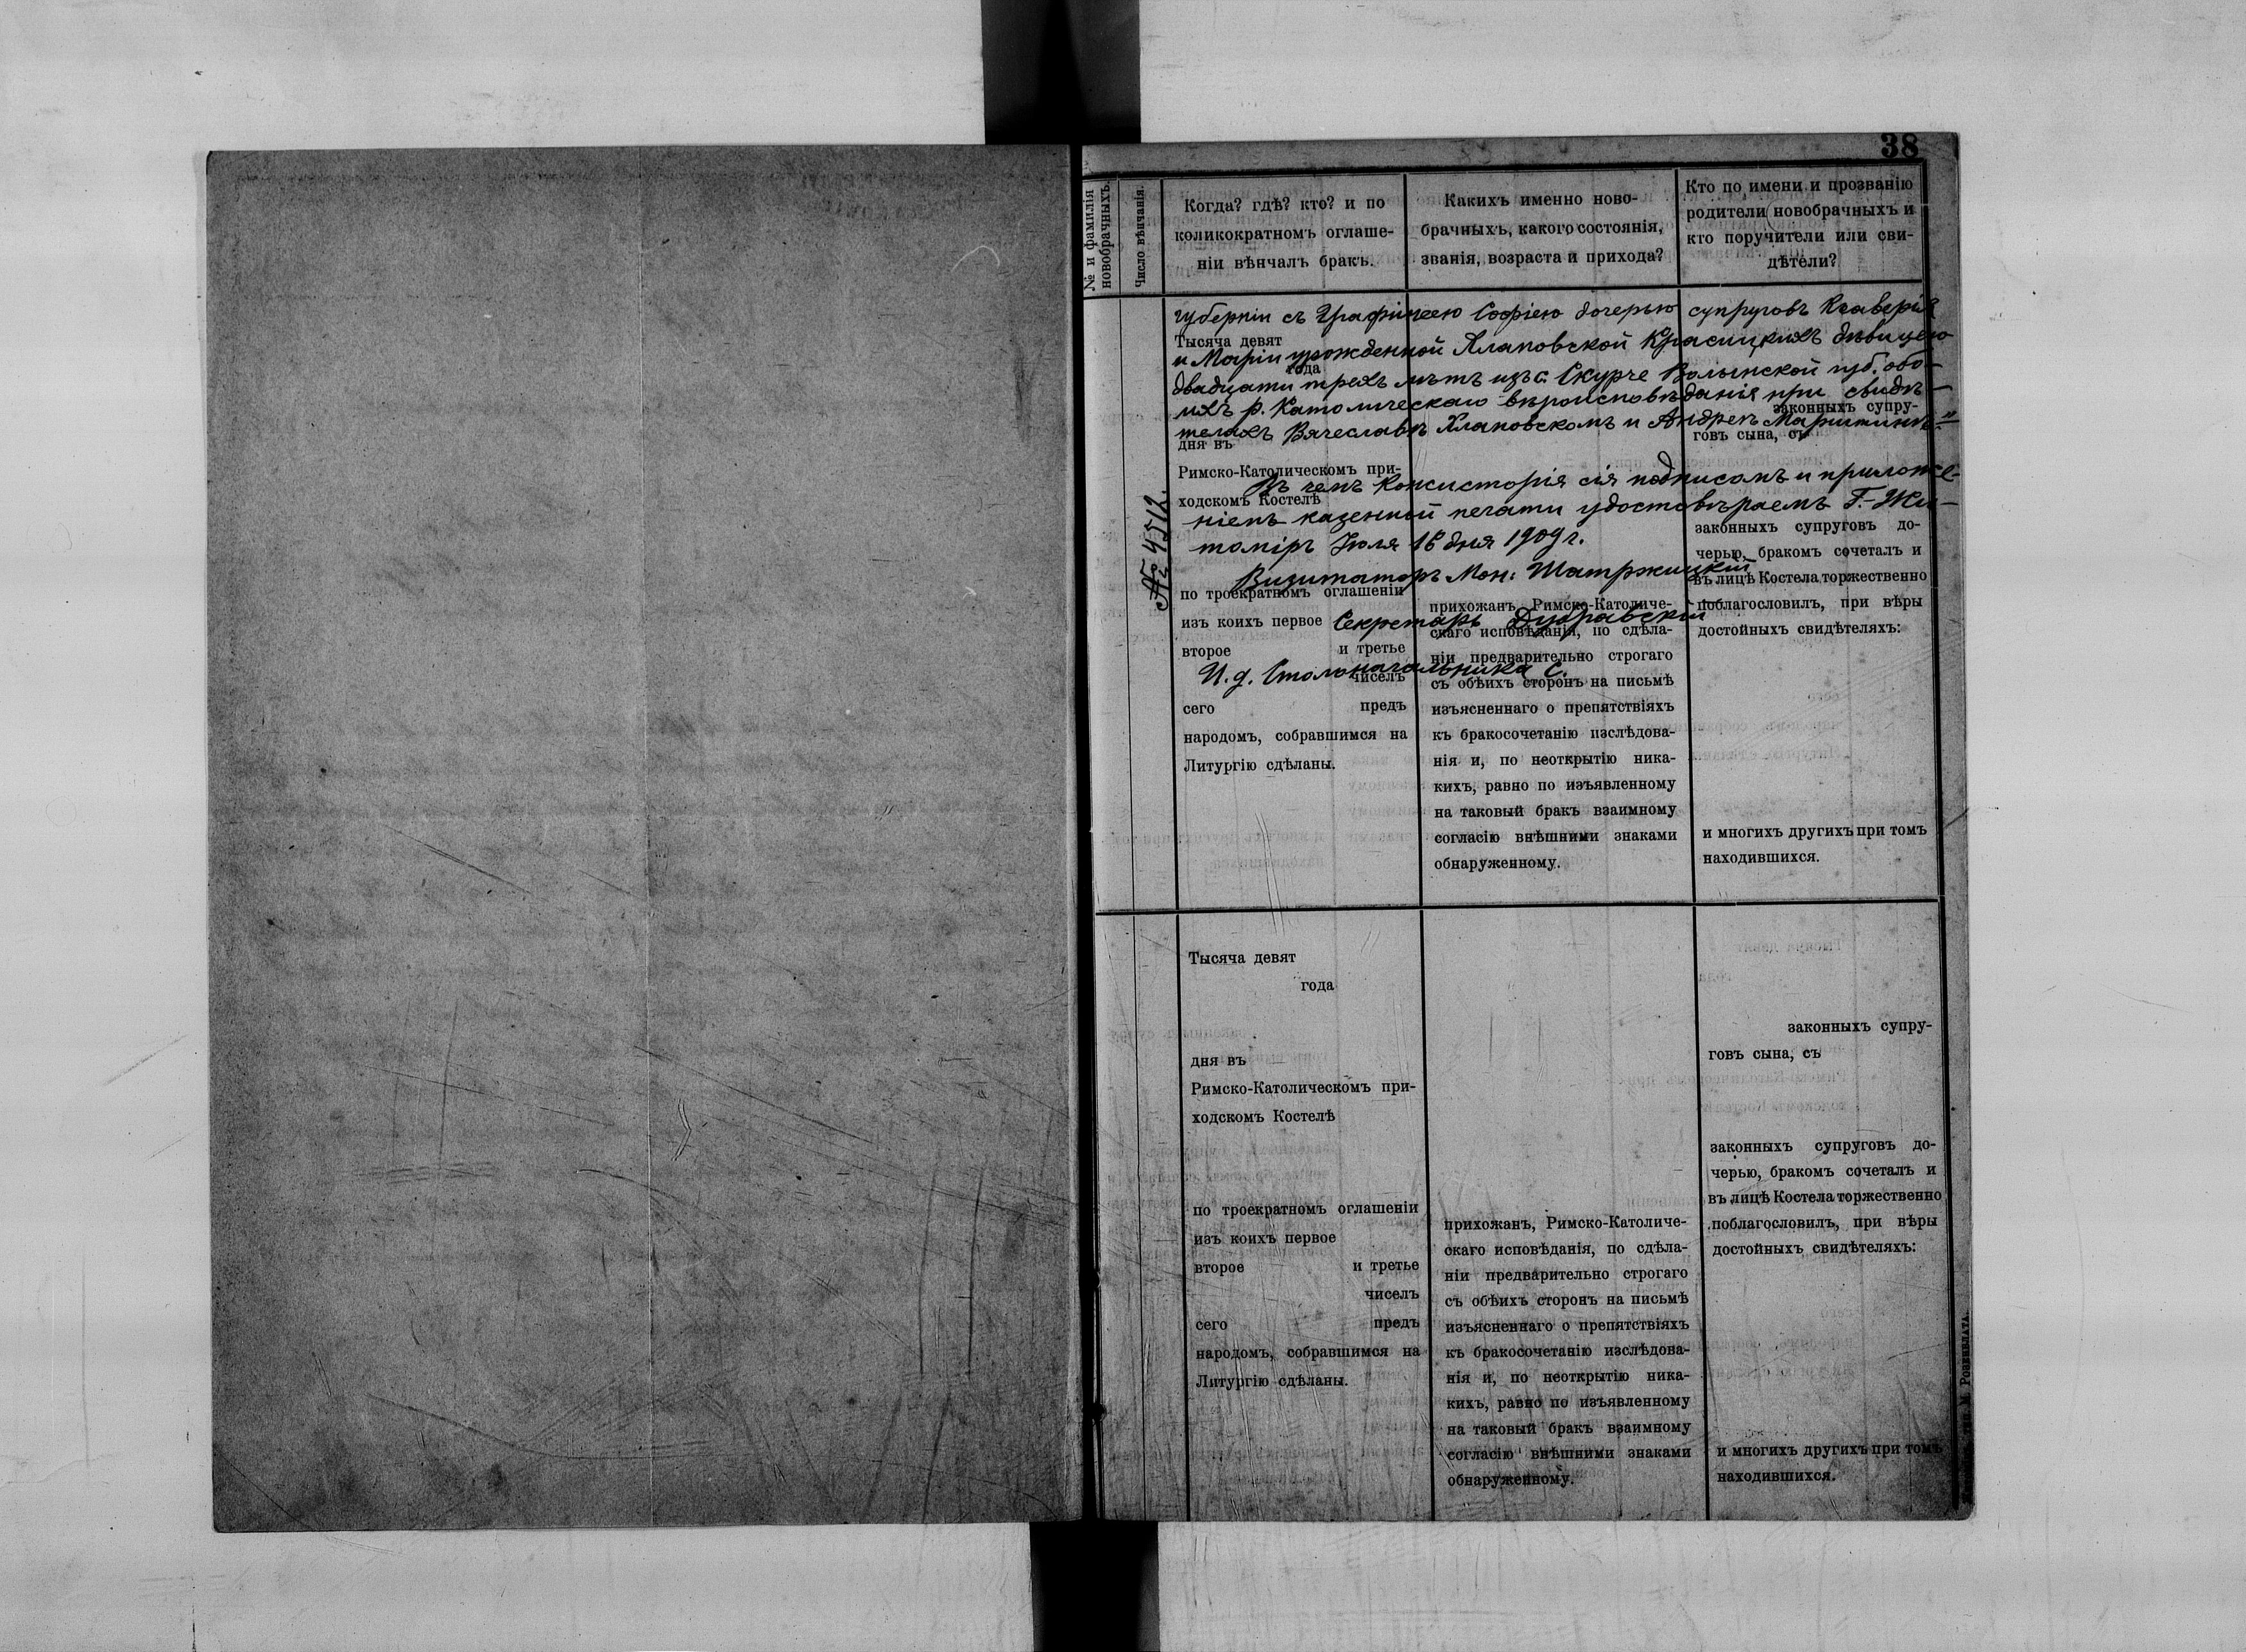 38
№ и фамилія
новобрачныхъ.
Число вѣнчанія.
Когда? гдѣ? кто? и по
коликократномъ оглаше-
ніи вѣнчалъ бракъ.
Какихъ именно ново-
брачныхъ, какого состоянія,
званія, возраста и прихода?
Кто по имени и прозванію
родители новобрачныхъ и
кто поручители или сви-
дѣтели?
№ 4512.
губерніи съ Графинею Софіею дочерью супруговъ Ксаверія
и Маріи урожденной Хлаповской Красицкихъ дѣвицею
двадцати трехъ лѣтъ изъ с. Скурче Волынской губ. обо-
ихъ р. Католическаго вѣроисповѣданія при свидѣ-
теляхъ Вячеславѣ Хлаповскомъ и Андреѣ
Въ чемъ Консисторія сія подписомъ и приложе-
ніемъ казенной печати удостовѣряемъ Г.-Жи-
томіръ Іюля 16 дня 1909 г.
Визитаторъ Мон:
Секретарь Дубравскій
И. д. Столоначальника С.
Тысяча девят
года
дня въ
Римско-Католическомъ при-
ходскомъ Костелѣ
по троекратномъ оглашеніи
изъ коихъ первое
второе и третье
чиселъ
сего предъ
народомъ, собравшимся на
Литургію сдѣланы.
прихожанъ, Римско-Католиче-
скаго исповѣданія, по сдѣла-
ніи предварительно строгаго
съ обѣихъ сторонъ на письмѣ
изъясненнаго о препятствіяхъ
къ бракосочетанію изслѣдова-
нія и, по неоткрытію ника-
кихъ, равно по изъявленному
на таковый бракъ взаимному
согласію внѣшними знаками
обнаруженному.
законныхъ супру-
говъ сына, съ
законныхъ супруговъ до-
черью, бракомъ сочеталъ и
въ лицѣ Костела торжественно
поблагословилъ, при вѣры
достойныхъ свидѣтеляхъ:
и многихъ другихъ при томъ
находившихся.
Тысяча девят
года
дня въ
Римско-Католическомъ при-
ходскомъ Костелѣ
по троекратномъ оглашеніи
изъ коихъ первое
второе и третье
чиселъ
сего предъ
народомъ, собравшимся на
Литургію сдѣланы.
прихожанъ, Римско-Католиче-
скаго исповѣданія, по сдѣла-
ніи предварительно строгаго
съ обѣихъ сторонъ на письмѣ
изъясненнаго о препятствіяхъ
къ бракосочетанію изслѣдова-
нія и, по неоткрытію ника-
кихъ, равно по изъявленному
на таковый бракъ взаимному
согласію внѣшними знаками
обнаруженному.
законныхъ супру-
говъ сына, съ
законныхъ супруговъ до-
черью, бракомъ сочеталъ и
въ лицѣ Костела торжественно
поблагословилъ, при вѣры
достойныхъ свидѣтеляхъ:
и многихъ другихъ при томъ
находившихся.
М. Розенблата.